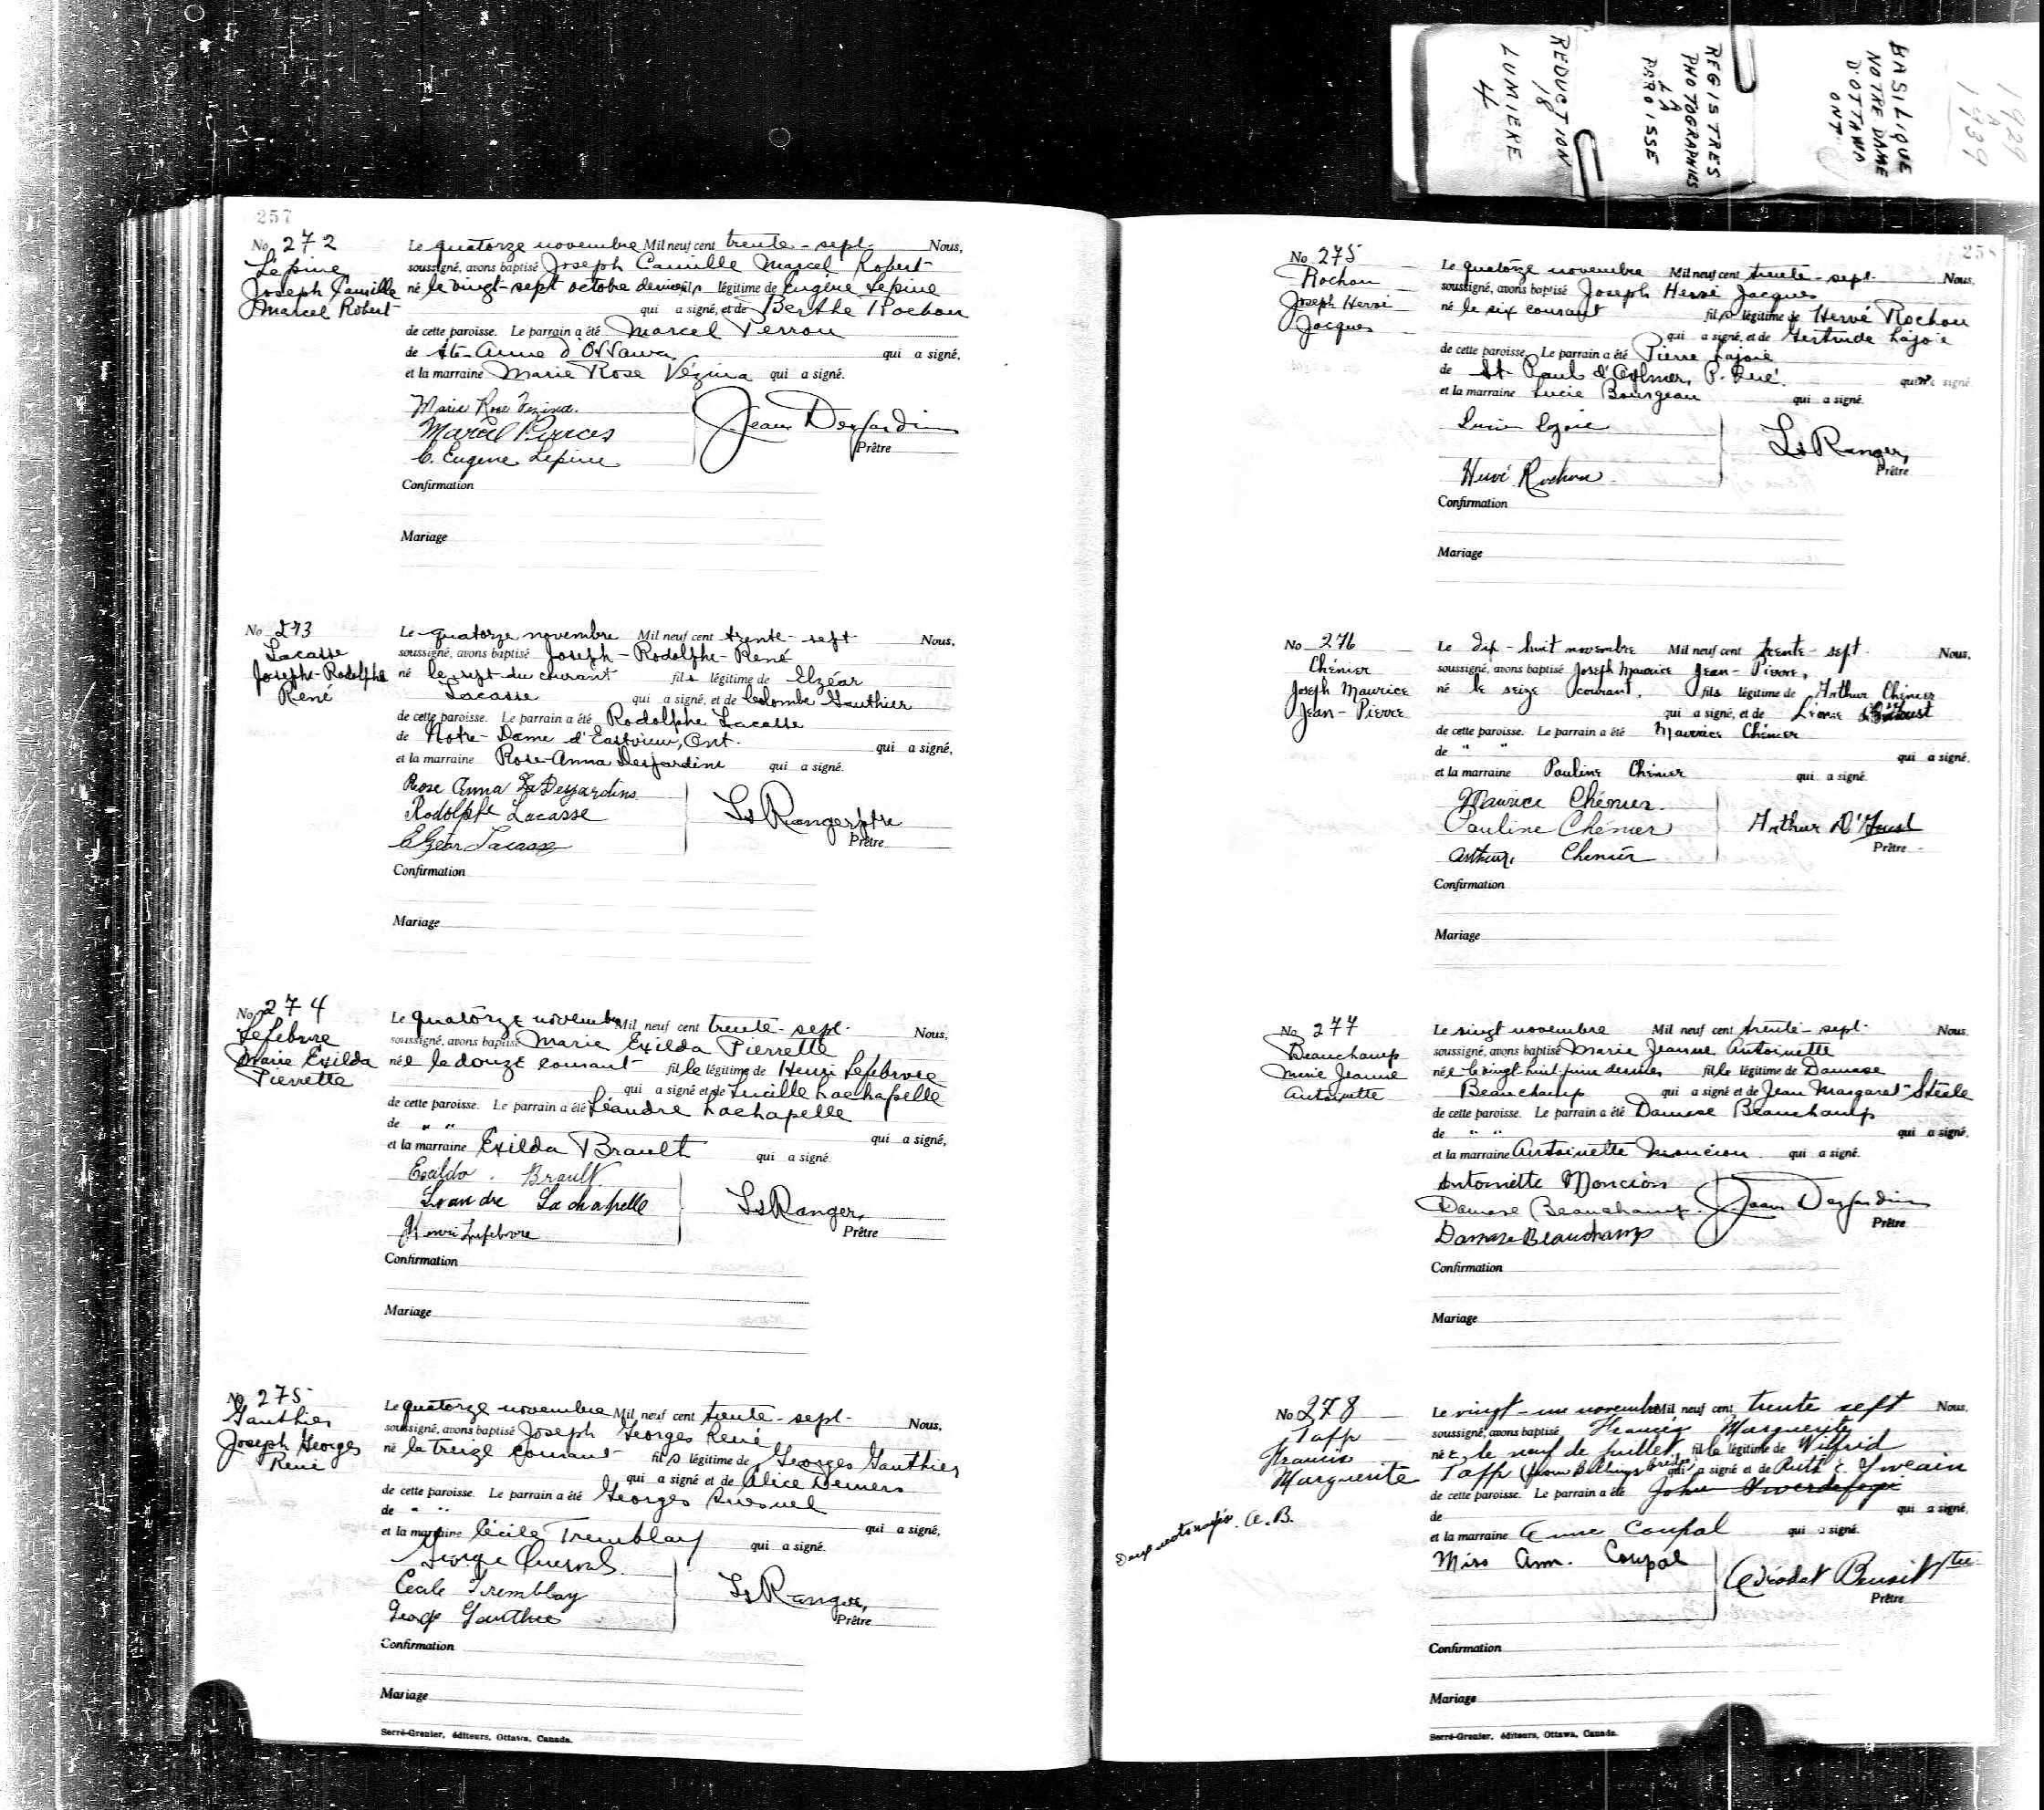 1929
A
1939
BASILIQUE
NOTRE DAME
D'OTTAWA
ONT.
REGISTRES
PHOTOGRAPHIÉS
À
LA
PAROISSE
REDUCTION
18
LUMIERE
4
257
No 272
Lépine
Joseph Camille
Marcel Robert
Le quatorze novembre Mil neuf cent trente-sept. Nous,
soussigné, avons baptisé Joseph Camille Marcel Robert
né le vingt-sept octobre dernier fils légitime de Eugène Lepine
qui a signé, et de Berthe Rochon
de cette paroisse. Le parrain a été Marcel Perron
de Ste-Anne d'Ottawa qui a signé,
et la marraine Marie Rose Vézina qui a signé.
Marie Rose Vezina.
Marcel
C. Eugene Lepine
Jean Desjardins
Prêtre
Confirmation
Mariage
No 273
Lacasse
Joseph-Rodolphe
René
Le quatorze novembre Mil neuf cent trente-sept. Nous,
soussigné, avons baptisé Joseph-Rodolphe-René
né le sept du courant fils légitime de Elzéar
Lacasse qui a signé, et de Colombe Gauthier
de cette paroisse. Le parrain a été Rodolphe Lacasse
de Notre-Dame d'Eastview, Ont. qui a signé,
et la marraine Rose-Anna Desjardins qui a signé.
Rose Anna Desjardins
Rodolphe Lacasse
Elzéar Lacasse
Ls Ranger ptre
Prêtre
Confirmation
Mariage
No 274
Lefebvre
Marie Exilda
Pierrette
Le quatorze novembre Mil neuf cent trente-sept. Nous,
soussigné, avons baptisé Marie Exilda Pierrette
née le douze courant fille légitime de Henri Lefebvre
qui a signé et de Lucille Lachapelle
de cette paroisse. Le parrain a été Léandre Lachapelle
de " " qui a signé,
et la marraine Exilda Brault qui a signé.
Exilda Brault
Léandre Lachapelle
Henri Lefebvre
Ls Ranger,
Prêtre
Confirmation
Mariage
No 275
Gauthier
Joseph Georges
René
Le quatorze novembre Mil neuf cent trente-sept. Nous,
soussigné, avons baptisé Joseph Georges René
né le treize courant fils légitime de Georges Gauthier
qui a signé et de Alice Demers
de cette paroisse. Le parrain a été Georges Quesnel
de " " qui a signé,
et la marraine Cécile Tremblay qui a signé.
George Quesnel
Cecile Tremblay
George Gauthier
Ls Ranger,
Prêtre
Confirmation
Mariage
Serré-Grenier, éditeurs, Ottawa, Canada.
258
No 275
Rochon
Joseph Hervé
Jacques
Le quatorze novembre Mil neuf cent trente-sept. Nous,
soussigné, avons baptisé Joseph Hervé Jacques
né le six courant fils légitime de Hervé Rochon
qui a signé, et de Gertrude Lajoie
de cette paroisse. Le parrain a été Pierre Lajoie
de St Paul d'Aylmer, P. Qué. qui a signé
et la marraine Lucie Bourgeau qui a signé.
Lajoie
Hervé Rochon
Ls Ranger,
Prêtre
Confirmation
Mariage
No 276
Chénier
Joseph Maurice
Jean-Pierre
Le dix-huit novembre Mil neuf cent trente-sept. Nous,
soussigné, avons baptisé Joseph Maurice Jean-Pierre,
né le seize courant, fils légitime de Arthur Chénier
qui a signé, et de Léonie
de cette paroisse. Le parrain a été Maurice Chénier
de " " qui a signé,
et la marraine Pauline Chénier qui a signé.
Maurice Chénier.
Pauline Chénier
Arthur Chenier
Arthur
Prêtre
Confirmation
Mariage
No 277
Beauchamp
Marie Jeanne
Antoinette
Le vingt novembre Mil neuf cent trente-sept. Nous
soussigné, avons baptisé Marie Jeanne Antoinette
née le vingt huit juin dernier fille légitime de Damase
Beauchamp qui a signé et de Jean Margaret Steele
de cette paroisse. Le parrain a été Damase Beauchamp
de " " qui a signé,
et la marraine Antoinette Moncion qui a signé.
Antoinette Moncion
Damase Beauchamp.
Damase Beauchamp
Jean Desjardins
Prêtre
Confirmation
Mariage
No 278
Taff
Francis
Marguerite
Le vingt-un novembre Mil neuf cent trente sept Nous
soussigné, avons baptisé Francis Marguerite
née, le neuf de juillet, fille légitime de Wilfrid
Taff (from Billings Bridge) qui a signé et de Ruth
de cette paroisse. Le parrain a été John
de qui a signé,
et la marraine Anne Coupal qui a signé.
Miss Ann. Coupal
Benoit ptre
Prêtre
A. B.
Confirmation
Mariage
Serré-Grenier, éditeurs, Ottawa, Canada.